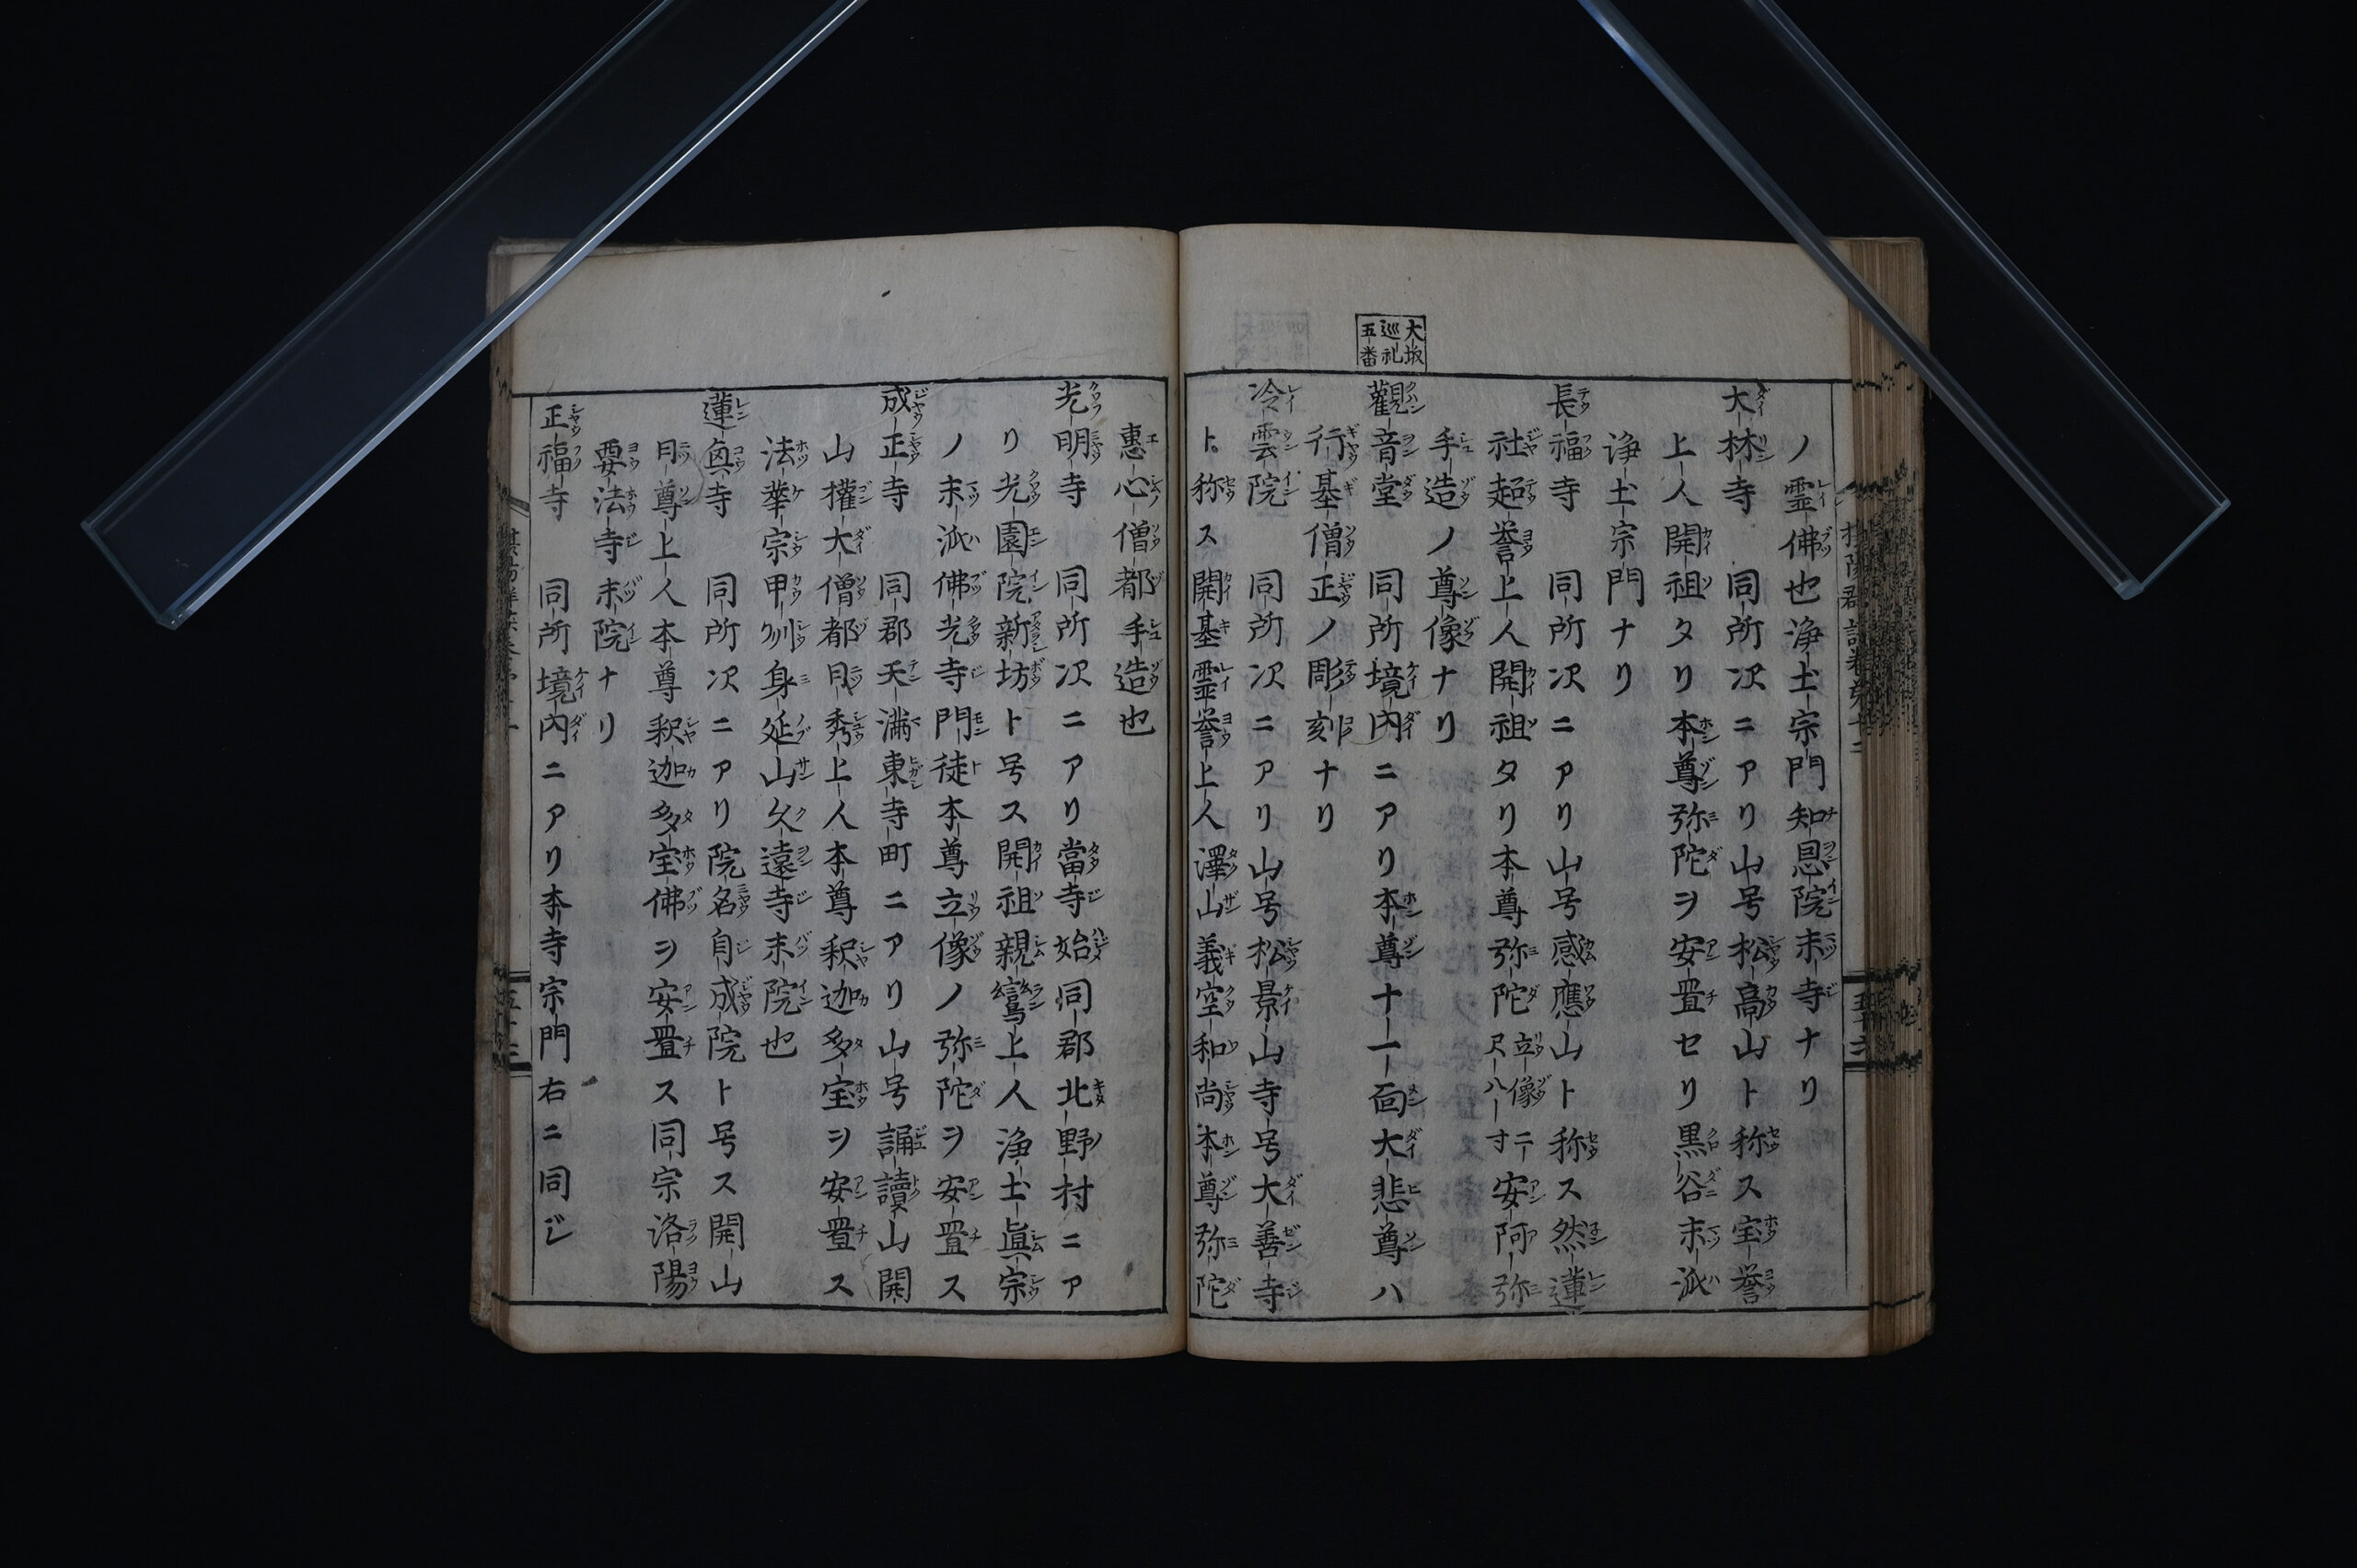 大坂
巡礼
五番
ノ霊佛也浄土宗門知恩院末寺ナリ
大林寺 同所次ニアリ山号松高山ト称ス宝誉
上人開祖タリ本尊弥陀ヲ安置セリ黒谷末派
浄土宗門ナリ
長福寺 同所次ニアリ山号感應山ト称ス然蓮
社超誉上人開祖タリ本尊弥陀立像二尺八寸安阿弥
手造ノ尊像ナリ
觀音堂 同所境内ニアリ本尊十一面大悲尊ハ
行基僧正ノ彫刻ナリ
冷雲院 同所次ニアリ山号松景山寺号大善寺
ト称ス開基霊誉上人澤山義空和尚本尊弥陀
惠心僧都手造也
光明寺 同所次ニアリ當寺始同郡北野村ニア
リ光園院新坊ト号ス開祖親鸞上人浄土眞宗
ノ末派佛光寺門徒本尊立像ノ弥陀ヲ安置ス
成正寺 同郡天満東寺町ニアリ山号誦讀山開
山權大僧都日秀上人本尊釈迦多宝ヲ安置ス
法華宗甲刕身延山久遠寺末院也
蓮興寺 同所次ニアリ院名自成院ト号ス開山
日尊上人本尊釈迦多宝佛ヲ安置ス同宗洛陽
要法寺末院ナリ
正福寺 同所境内ニアリ本寺宗門右ニ同ジ